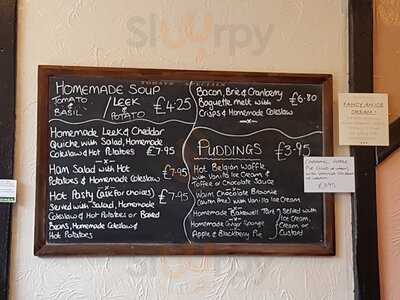 Homemade Soup
Tomato & Basil / Leek & Potato £4.25
Homemade Leek & Cheddar
Quiche with Salad, Homemade
Coleslaw & Hot Potatoes £7.95
Ham Salad with Hot £7.95
Potatoes & Homemade Coleslaw
Hot Pasty (ask for choices) £7.95
Served with Salad, Homemade
Coleslaw & Hot Potatoes or Baked
Beans, Homemade Coleslaw &
Hot Potatoes
Bacon, Brie & Cranberry £6.80
Baguette melt with
Crisps & Homemade Coleslaw
Puddings £3.95
Hot Belgian Waffle
with Vanilla Ice Cream &
Toffee or Chocolate Sauce
Warm Chocolate Brownie
(Gluten Free) with Vanilla Ice Cream
Homemade Bakewell Tart
Homemade Ginger Sponge
Apple & Blackberry Pie
Served with
Ice Cream,
Cream or
Custard
FANCY AN ICE
CREAM?
Sluurpy